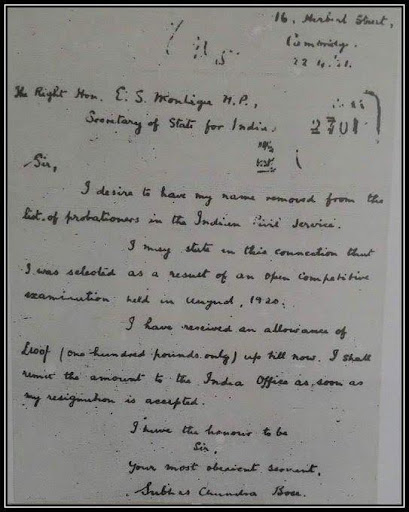 16, Herbert Street,
Cambridge.
22.4.21.
The Right Hon. E. S. Montague M.P.,
Secretary of State for India.
2701
Sir,
I desire to have my name removed from the
list of probationers in the Indian Civil Service.
I may state in this connection that
I was selected as a result of an open competitive
examination held in August, 1920.
I have received an allowance of
£100/- (one hundred pounds only) up till now. I shall
remit the amount to the India Office as soon as
my resignation is accepted.
I have the honour to be
Sir,
Your most obedient servant,
Subhas Chandra Bose.